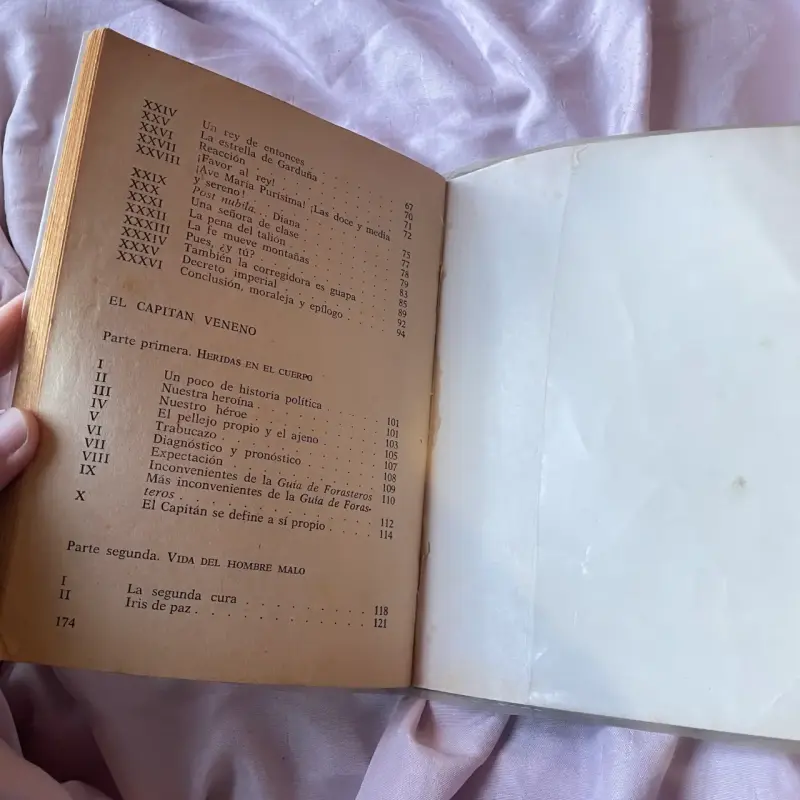 XXIV Un rey de entonces . . . . . . 67
XXV La estrella de Garduña . . . . . . 70
XXVI Reacción . . . . . . 71
XXVII ¡Favor al rey! . . . . . . 72
XXVIII ¡Ave María Purísima! ¡Las doce y media
y sereno! . . . . . . 75
XXIX Post nubila... Diana . . . . . . 77
XXX Una señora de clase . . . . . . 78
XXXI La pena del talión . . . . . . 79
XXXII La fe mueve montañas . . . . . . 83
XXXIII Pues, ¿y tú? . . . . . . 85
XXXIV También la corregidora es guapa . . . 89
XXXV Decreto imperial . . . . . . 92
XXXVI Conclusión, moraleja y epílogo . . . . 94
EL CAPITAN VENENO
Parte primera. HERIDAS EN EL CUERPO
I Un poco de historia política . . . . . . 101
II Nuestra heroína . . . . . . 101
III Nuestro héroe . . . . . . 103
IV El pellejo propio y el ajeno . . . . . . 105
V Trabucazo . . . . . . 107
VI Diagnóstico y pronóstico . . . . . . 108
VII Expectación . . . . . . 109
VIII Inconvenientes de la Guía de Forasteros 110
IX Más inconvenientes de la Guía de Foras-
teros . . . . . . 112
X El Capitán se define a sí propio . . . . 114
Parte segunda. VIDA DEL HOMBRE MALO
I La segunda cura . . . . . . 118
II Iris de paz . . . . . . 121
174